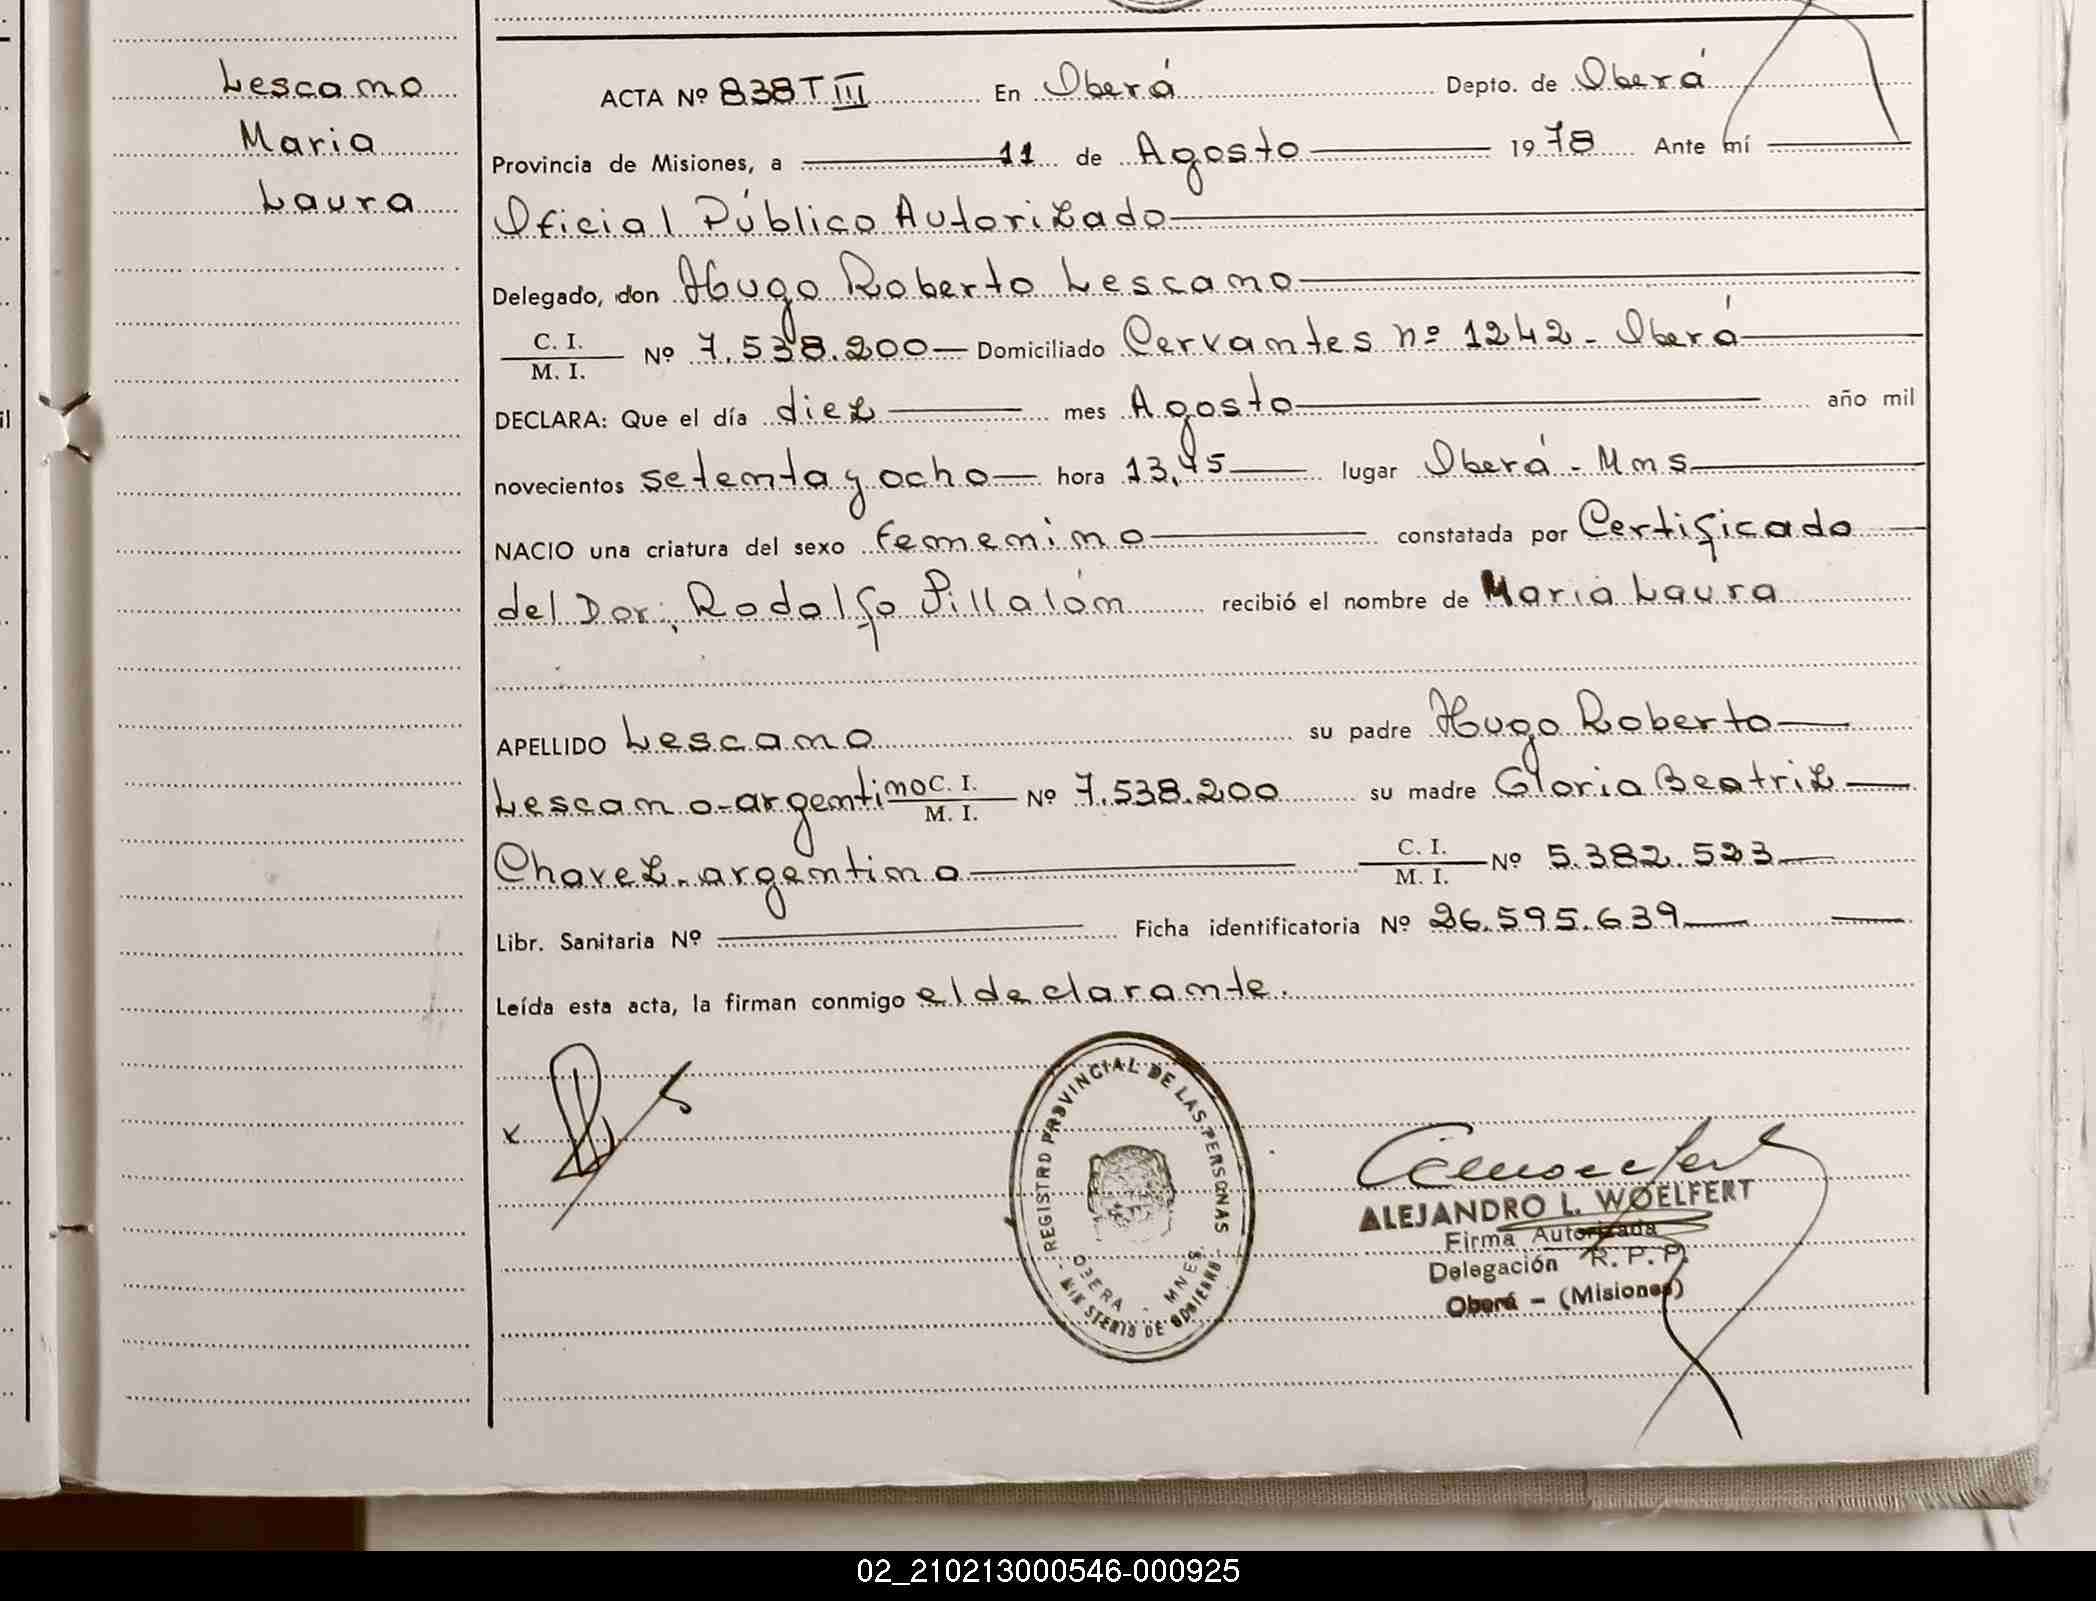 Lescano
Maria
Laura
ACTA Nº 838 T III En Oberá Depto. de Oberá
Provincia de Misiones, a 11 de Agosto 1978 Ante mí
Oficial Público Autorizado
Delegado, don Hugo Roberto Lescano
C. I.
M. I. Nº 7.538.200 Domiciliado Cervantes nº 1242 - Oberá
DECLARA: Que el día diez mes Agosto año mil
novecientos setenta y ocho hora 13,45 lugar Oberá - Mns
NACIO una criatura del sexo femenino constatada por Certificado
del Dor; Rodolfo Pillalón recibió el nombre de Maria Laura
APELLIDO Lescano su padre Hugo Roberto
Lescano-argentino C. I. M. I. Nº 7.538.200 su madre Gloria Beatriz
Chavez-argentina C. I. M. I. Nº 5.382.523
Libr. Sanitaria Nº Ficha identificatoria Nº 26.595.639
Leída esta acta, la firman conmigo el declarante.
x
REGISTRO PROVINCIAL DE LAS PERSONAS
OBERA - MNES
- MINISTERIO DE GOBIERNO -
ALEJANDRO L. WOELFERT
Firma Autorizada
Delegación R. P. P.
Oberá - (Misiones)
il
02_210213000546-000925